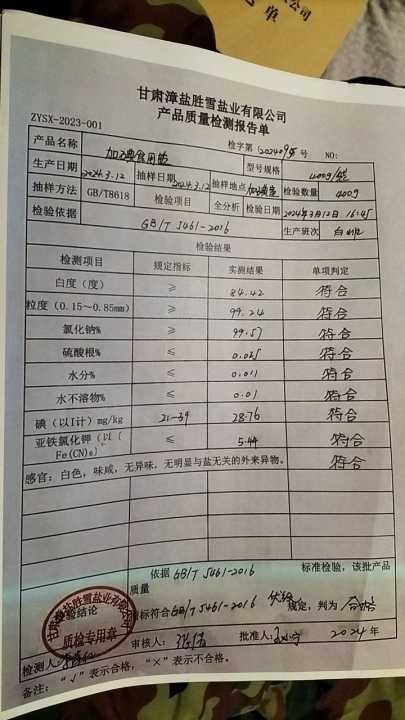 甘肃漳盐胜雪盐业有限公司
ZYSX-2023-001 产品质量检测报告单
检字第 号 NO:
产品名称 加碘食用盐 型号规格 400g/袋
生产日期 2024.3.12 抽样日期 2024.3.12 抽样地点 检验数量 400g
抽样方法 GB/T8618 检验项目 全分析 检验日期 2024年3月12日 16:45
检验依据 GB/T 5461-2016 生产班次 白班
检验结果
检测项目 规定指标 实测结果 单项判定
白度（度） ≥ 84.42 符合
粒度（0.15～0.85mm） ≥ 99.24 符合
氯化钠% ≥ 99.57 符合
硫酸根% ≤ 0.025 符合
水分% ≤ 0.011 符合
水不溶物% ≤ 0.01 符合
碘（以I计）mg/kg 21-39 28.76 符合
亚铁氯化钾（以〔 ≤ 5.44 符合
Fe(CN)₆〕
感官：白色，味咸，无异味，无明显与盐无关的外来异物。 符合
依据 GB/T 5461-2016 标准检验，该批产品
质量
检验结论 指标符合 GB/T 5461-2016 规定，判为 合格
甘肃漳盐胜雪盐业有限公司
质检专用章
检测人: 审核人: 批准人: 2024年
备注：“√”表示合格，“×”表示不合格。